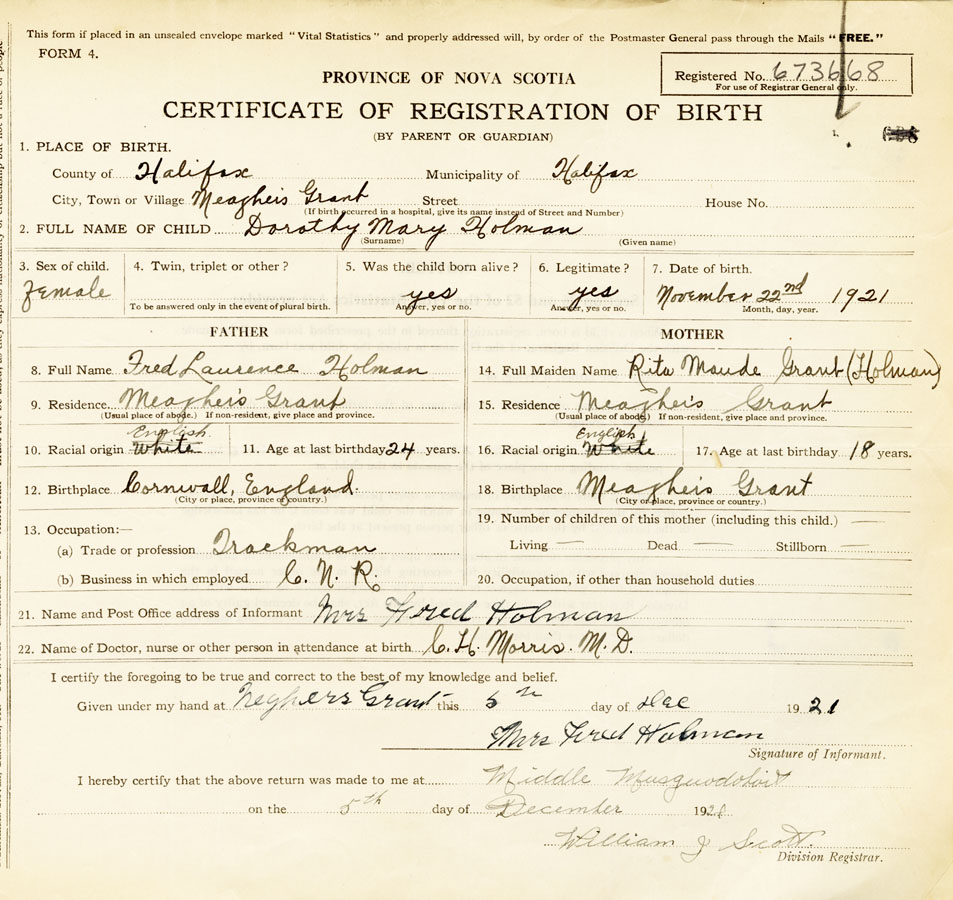 This form if placed in an unsealed envelope marked "Vital Statistics" and properly addressed will, by order of the Postmaster General pass through the Mails "FREE."
FORM 4.
PROVINCE OF NOVA SCOTIA
Registered No. 673668
For use of Registrar General only.
CERTIFICATE OF REGISTRATION OF BIRTH
(BY PARENT OR GUARDIAN)
1. PLACE OF BIRTH.
County of Halifax Municipality of Halifax
City, Town or Village Meagheis Grant Street House No.
(If birth occurred in a hospital, give its name instead of Street and Number)
2. FULL NAME OF CHILD Dorothy Mary Holman
(Surname) (Given name)
3. Sex of child. 4. Twin, triplet or other? 5. Was the child born alive? 6. Legitimate? 7. Date of birth.
Female yes yes November 22nd 1921
To be answered only in the event of plural birth. Answer, yes or no. Answer, yes or no. Month, day, year.
FATHER MOTHER
8. Full Name Fred Laurence Holman 14. Full Maiden Name Rita Maude Grant (Holman)
9. Residence Meagheis Grant 15. Residence Meagheis Grant
(Usual place of abode.) If non-resident, give place and province. (Usual place of abode) If non-resident, give place and province.
English English
10. Racial origin White 11. Age at last birthday 24 years. 16. Racial origin White 17. Age at last birthday 18 years.
12. Birthplace Cornwall, England. 18. Birthplace Meagheis Grant
(City or place, province or country.) (City or place, province or country.)
13. Occupation:— 19. Number of children of this mother (including this child.) —
(a) Trade or profession Trackman Living — Dead — Stillborn —
(b) Business in which employed C. N. R. 20. Occupation, if other than household duties
21. Name and Post Office address of Informant Mrs Fred Holman
22. Name of Doctor, nurse or other person in attendance at birth C. H. Morris. M. D.
I certify the foregoing to be true and correct to the best of my knowledge and belief.
Given under my hand at Grant this 5th day of Dec 1921
Mrs Fred Holman
Signature of Informant.
I hereby certify that the above return was made to me at Middle Musquodoboit
on the 5th day of December 1921
William J Scott.
Division Registrar.